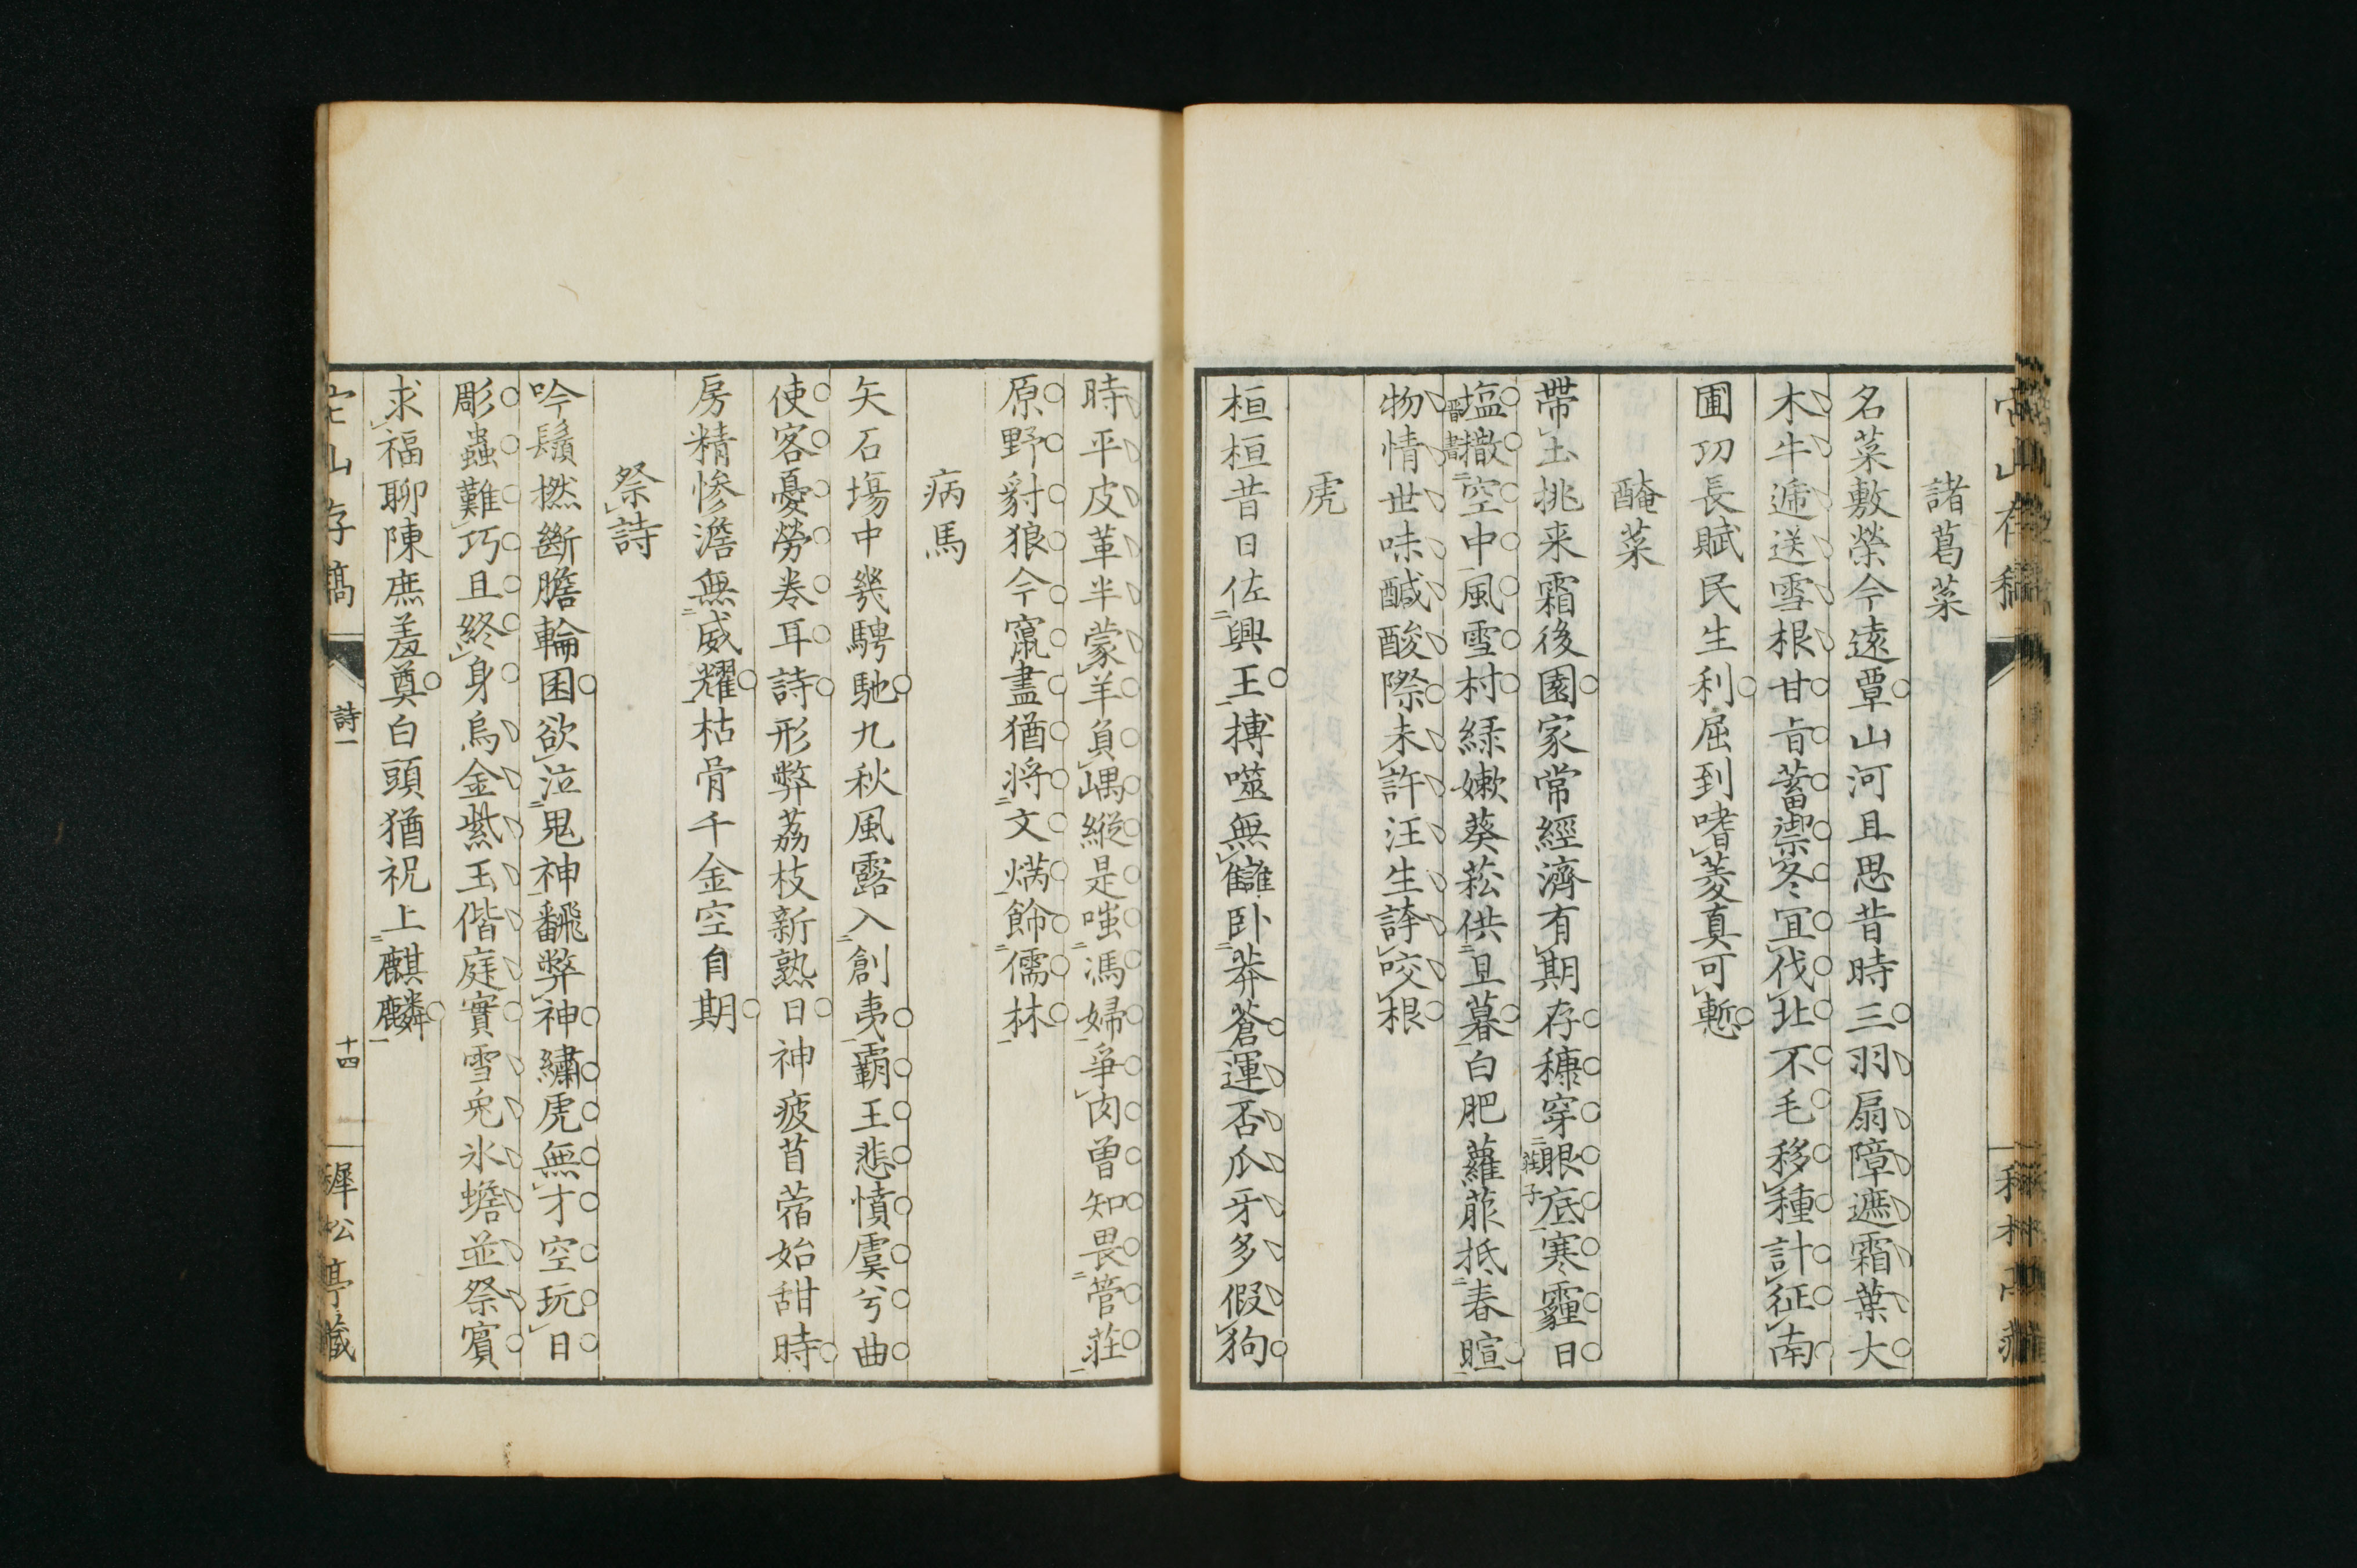 諸葛菜
名菜敷榮今遠覃山河且思昔時三羽扇障遮霜葉大
木牛遞送雪根甘旨蓄禦冬宜伐北不毛移種計征南
圃功長賦民生利屈到嗜菱真可慙
醃菜
帶土挑来霜後園家常經濟有期存穅穿眼底寒霾日
莊子
塩撒空中風雪村緑嫰葵菘供旦暮白肥蘿菔抵春暄
晋書
物情世味醎酸際未許汪生誇咬根
虎
桓桓昔日佐興王搏噬無讎卧莽蒼運否爪牙多假狗
時平皮革半蒙羊負嵎縱是嗤馮婦爭肉曽知畏管莊
原野豺狼今竄盡猶将文炳飾儒林
病馬
矢石塲中幾騁馳九秋風露入創夷覇王悲憤虞兮曲
使客憂勞卷耳詩形弊荔枝新熟日神疲苜蓿始甜時
房精惨澹無威耀枯骨千金空自期
祭詩
吟鬚撚斷膽輪囷欲泣鬼神翻弊神繡虎無才空玩日
彫蟲難巧且終身烏金紫玉偕庭實雪兎氷蟾並祭賓
求福聊陳庶羞奠白頭猶祝上麒麟
宕山存稿
詩一
十四
穉松亭藏